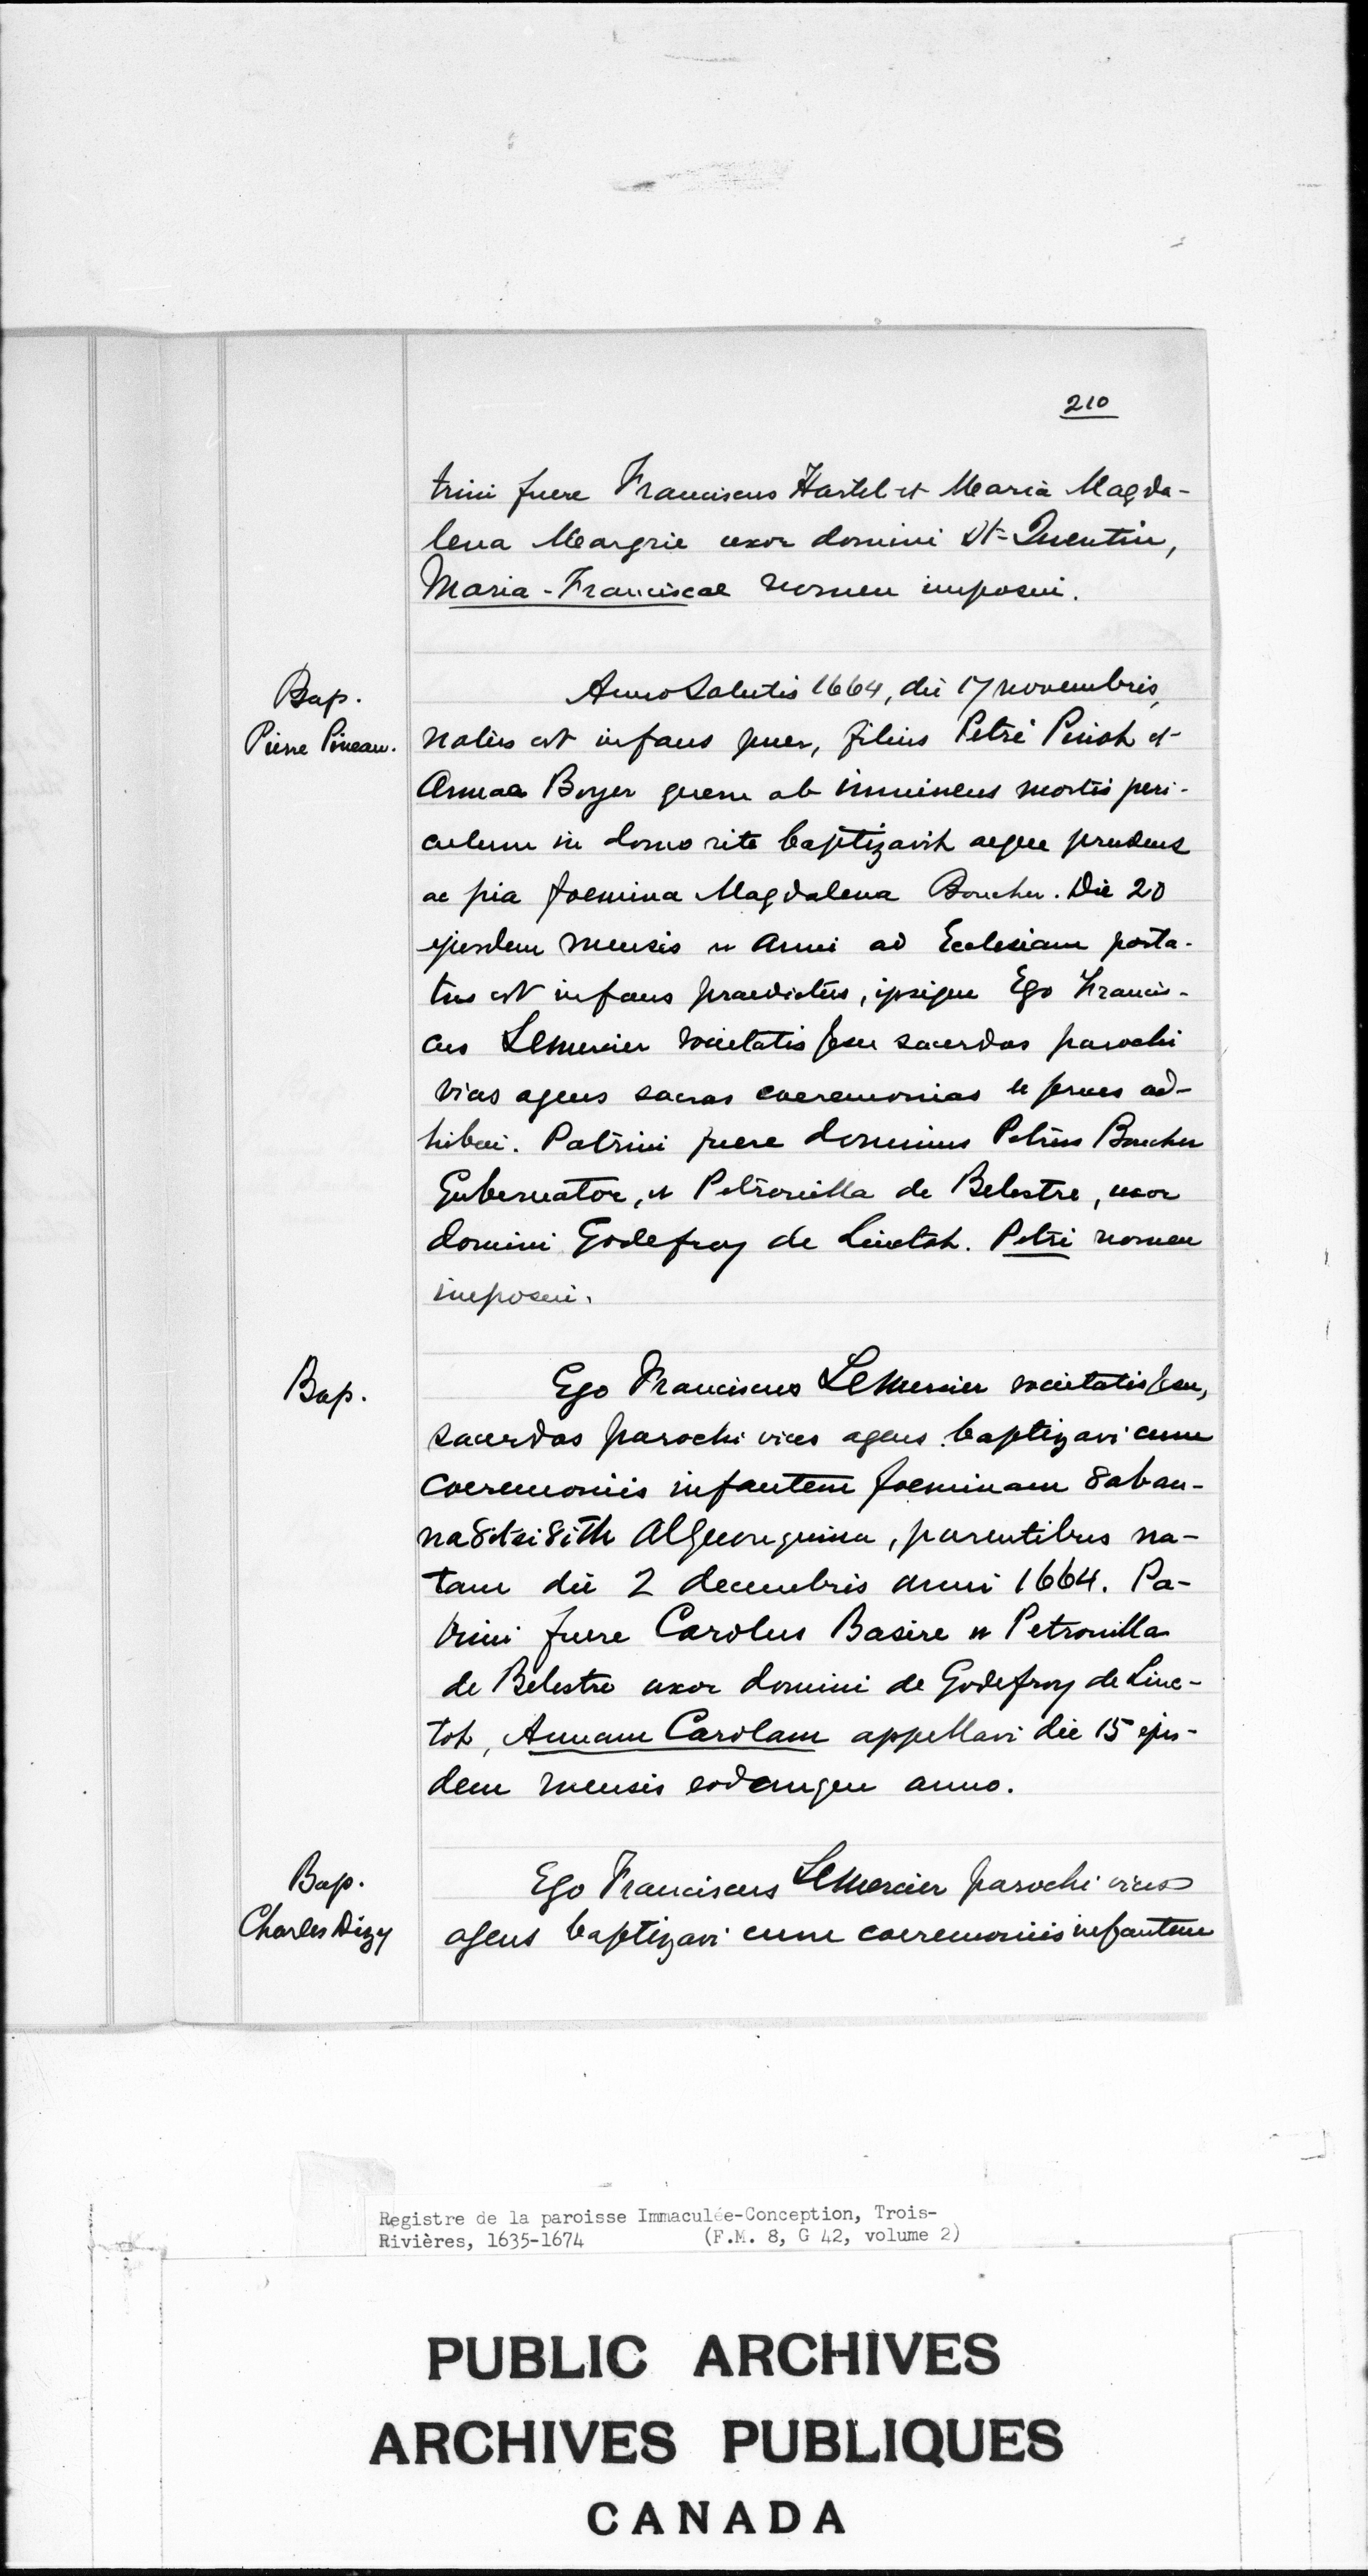 210
trini fuere Franciscus Hartel et Maria Magda-
lena Meargrie uxor domini St-Quentin,
Maria-Franciscae nomen imposui.
Bap.
Pierre Pineau.
Anno Salutis 1664, die 17 novembris,
natus est infans puer, filius Petri Pinoh et
Annae Boyer quem ob imminens mortis peri-
culum in domo rite baptizavit aeque prudens
ac pia foemina Magdalena Boucher. Die 20
ejusdem mensis et anni ad Ecclesiam porta-
tus est infans praedictus, ipsique Ego Francis-
cus LeMercier societatis Jesu sacerdos parochi
vices agens sacras coeremonias et preces ad-
hibui. Patrini fuere dominus Petrus Boucher
Gubernator, et Petronilla de Belestre, uxor
domini Godefroy de Linctoh. Petri nomen
imposui.
Bap.
Ego Franciscus LeMercier societatis Jesu,
sacerdos parochi vices agens baptizavi cum
coeremoniis infantem foeminam 8aban-
na8itsi8ith Algeonquina, parentibus na-
tam die 2 decembris anni 1664. Pa-
trini fuere Carolus Basire et Petronilla
de Belestre uxor domini de Godefroy de Linc-
toh, Annam Carolam appellavi die 15 ejus-
dem mensis eodemque anno.
Bap.
Charles Dizy
Ego Franciscus LeMercier parochi vices
agens baptizavi cum coeremoniis infantem
Registre de la paroisse Immaculée-Conception, Trois-
Rivières, 1635-1674 (F.M. 8, G 42, volume 2)
PUBLIC ARCHIVES
ARCHIVES PUBLIQUES
CANADA